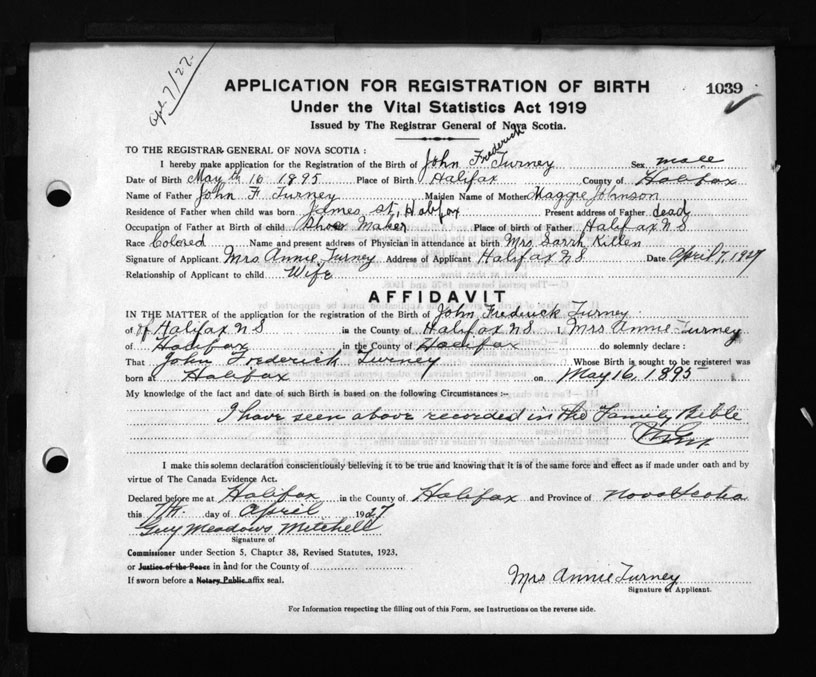 Apl. 7/27
APPLICATION FOR REGISTRATION OF BIRTH
1039
Under the Vital Statistics Act 1919
Issued by The Registrar General of Nova Scotia.
TO THE REGISTRAR GENERAL OF NOVA SCOTIA :
I hereby make application for the Registration of the Birth of John Frederick Turney Sex male
Date of Birth May th 16 1895 Place of Birth Halifax County of Halifax
Name of Father John F Turney Maiden Name of Mother Maggie Johnson
Residence of Father when child was born James st, Halifax Present address of Father dead
Occupation of Father at Birth of child Shoe Maker Place of birth of Father Halifax N S
Race Colored Name and present address of Physician in attendance at birth Mrs Sarrh Killen
Signature of Applicant Mrs Annie Turney Address of Applicant Halifax N S Date April 7, 1927
Relationship of Applicant to child Wife
AFFIDAVIT
IN THE MATTER of the application for the registration of the Birth of John Frederick Turney
of of Halifax N S in the County of Halifax N S I, Mrs Annie Turney
of Halifax in the County of Halifax do solemnly declare :
That John Frederick Turney Whose Birth is sought to be registered was
born at Halifax on May 16, 1895
My knowledge of the fact and date of such Birth is based on the following Circumstances :-
I have seen above recorded in the Family Bible
I make this solemn declaration conscientiously believing it to be true and knowing that it is of the same force and effect as if made under oath and by
virtue of The Canada Evidence Act.
Declared before me at Halifax in the County of Halifax and Province of Nova Scotia
this 7th. day of April 1927
Guy Meadows Mitchell
Signature of
Commissioner under Section 5, Chapter 38, Revised Statutes, 1923.
or Justice of the Peace in and for the County of
If sworn before a Notary Public affix seal.
Mrs Annie Turney
Signature of Applicant.
For Information respecting the filling out of this Form, see Instructions on the reverse side.